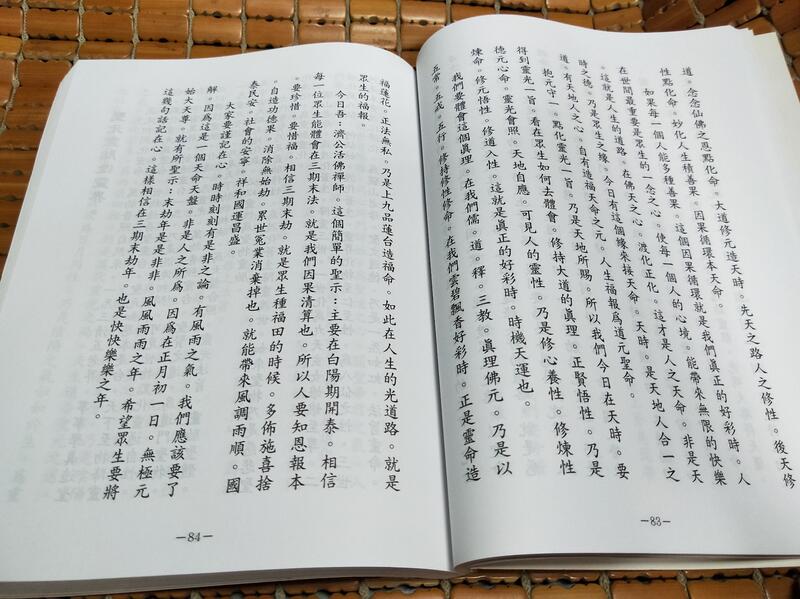 道。念念仙佛之恩點化命。大道修元造天時。先天之路人之修性。後天修
性點化命。妙化人生積善果。因果循環本天命。
如果每一個人能多種善果。這個因果循環就是我們真正的好彩時。人
在世間最重要是眾生的一念之心。使每一個人的心境。能帶來無限的快樂
。這就是人生的道路。在佛天之心。渡化正化。這才是人之天命。非是天
時之德。乃是眾生之緣。今日有這個緣來接天命。天時。是天地人合一之
道。有天地人之心。自有造福天命之元。人生福報為道元聖命。
抱元守一。點化靈光一旨。乃是天地所賜。所以我們今日在天時。要
得到靈光一旨。看在眾生如何去體會。修持大道的真理。正賢悟性。乃是
德元心命。靈光會照。天地自應。可見人的靈性。乃是修心養性。修煉性
煉命。修元悟性。修道入性。這就是真正的好彩時。時機天運也。
我們要體會這個真理。在我們儒。道。釋。三教。真理佛元。乃是以
五常。五戒。五行。修持修性修命。在我們雲碧飄香好彩時。正是靈命造
—83—
福蓮花。正法無私。乃是上九品蓮台造福命。如此在人生的光道路。就是
眾生的福報。
今日吾：濟公活佛禪師。這個簡單的聖示：主要在白陽期開泰。相信
每一位眾生能體會在三期末法。就是我們因果清算也。所以人要知恩報本
。要珍惜。要惜福。相信三期末劫。就是眾生種福田的時候。多佈施喜捨
。自造功德果。消除無始劫。累世冤業消棄掉也。就能帶來風調雨順。國
泰民安。社會的安寧。祥和國運昌盛。
大家要謹記在心。時時刻刻有是非之論。有風雨之氣。我們應該要了
解。因為這是一個天命天盤。非是人之所為。因為在正月初一日。無極元
始大天尊。就有所聖示：末劫年是是非非。風風雨雨之年。希望眾生要將
這幾句話記在心。這樣相信在三期末劫年。也是快快樂樂之年。
—84—